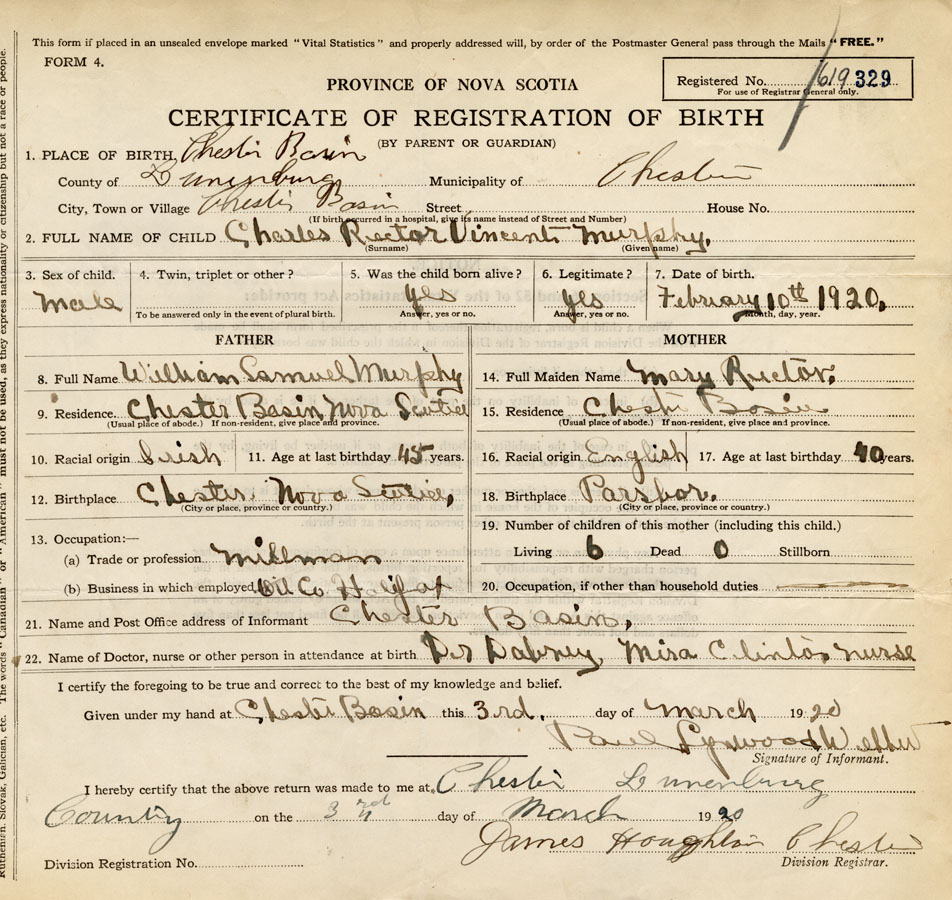 This form if placed in an unsealed envelope marked "Vital Statistics" and properly addressed will, by order of the Postmaster General pass through the Mails "FREE."
FORM 4.
Registered No. 619 329
For use of Registrar General only.
PROVINCE OF NOVA SCOTIA
CERTIFICATE OF REGISTRATION OF BIRTH
(BY PARENT OR GUARDIAN)
1. PLACE OF BIRTH Chester Basin
County of Lunenburg Municipality of Chester
City, Town or Village Chester Basin Street House No.
(If birth occurred in a hospital, give its name instead of Street and Number)
2. FULL NAME OF CHILD Charles Rector Vincent Murphy.
(Surname) (Given name)
3. Sex of child. 4. Twin, triplet or other? 5. Was the child born alive? 6. Legitimate? 7. Date of birth.
Male yes yes February 10th 1920.
To be answered only in the event of plural birth. Answer, yes or no. Answer, yes or no. Month, day, year.
FATHER MOTHER
8. Full Name William Samuel Murphy 14. Full Maiden Name Mary Rector.
9. Residence Chester Basin Nova Scotia 15. Residence Chester Basin
(Usual place of abode.) If non-resident, give place and province. (Usual place of abode.) If non-resident, give place and province.
10. Racial origin Irish 11. Age at last birthday 45 years. 16. Racial origin English 17. Age at last birthday 40 years.
12. Birthplace Chester Nova Scotia, 18. Birthplace Parsbor.
(City or place, province or country.) (City or place, province or country.)
13. Occupation:— 19. Number of children of this mother (including this child.)
(a) Trade or profession millman Living 6 Dead 0 Stillborn
(b) Business in which employed Oil Co 20. Occupation, if other than household duties
21. Name and Post Office address of Informant Chester Basin,
22. Name of Doctor, nurse or other person in attendance at birth Dr Dabney Miss Clinton nurse
I certify the foregoing to be true and correct to the best of my knowledge and belief.
Given under my hand at Chester Basin this 3rd. day of March 1920
Paul
Signature of Informant.
I hereby certify that the above return was made to me at Chester Lunenburg
County on the 3rd day of March 1920
James Houghton Chester
Division Registration No. Division Registrar.
Ruthenien, Slovak, Galician, etc. The words "Canadian" or "American" must not be used, as they express nationality or citizenship but not a race or people.